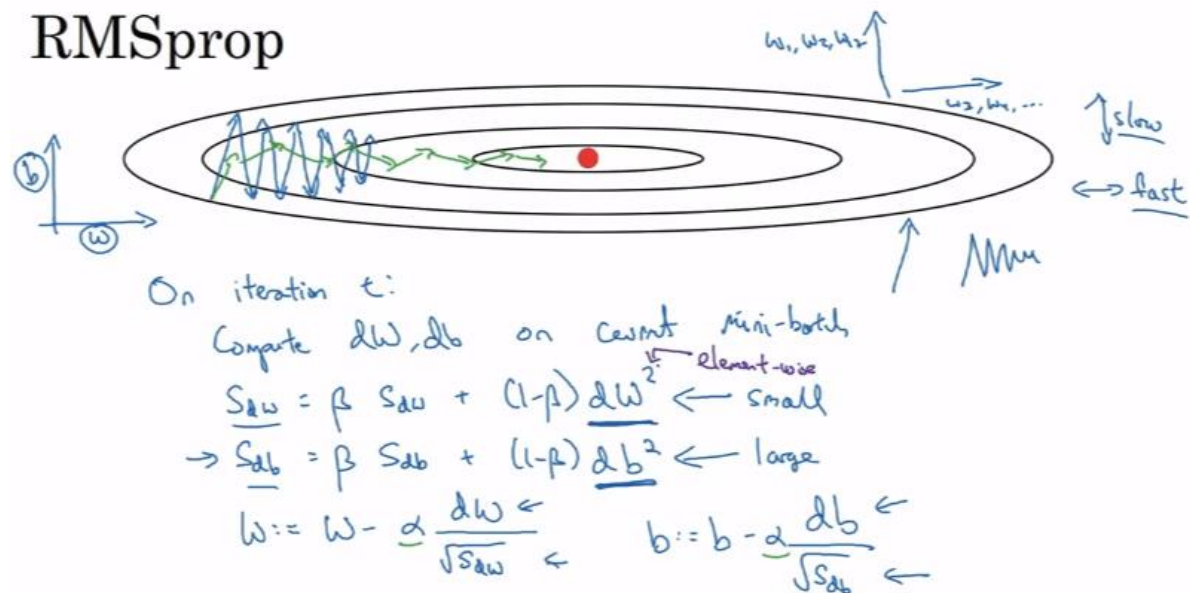 RMSprop
w₁, w₂, w₂
w₃, w₄, ...
slow
fast
b
w
On iteration t:
Compute dW, db on current mini-batch
element-wise
S_dw = β S_dw + (1-β) dW² ← small
→ S_db = β S_db + (1-β) db² ← large
W := W - α dW/√S_dw ← b := b - α db/√S_db ←